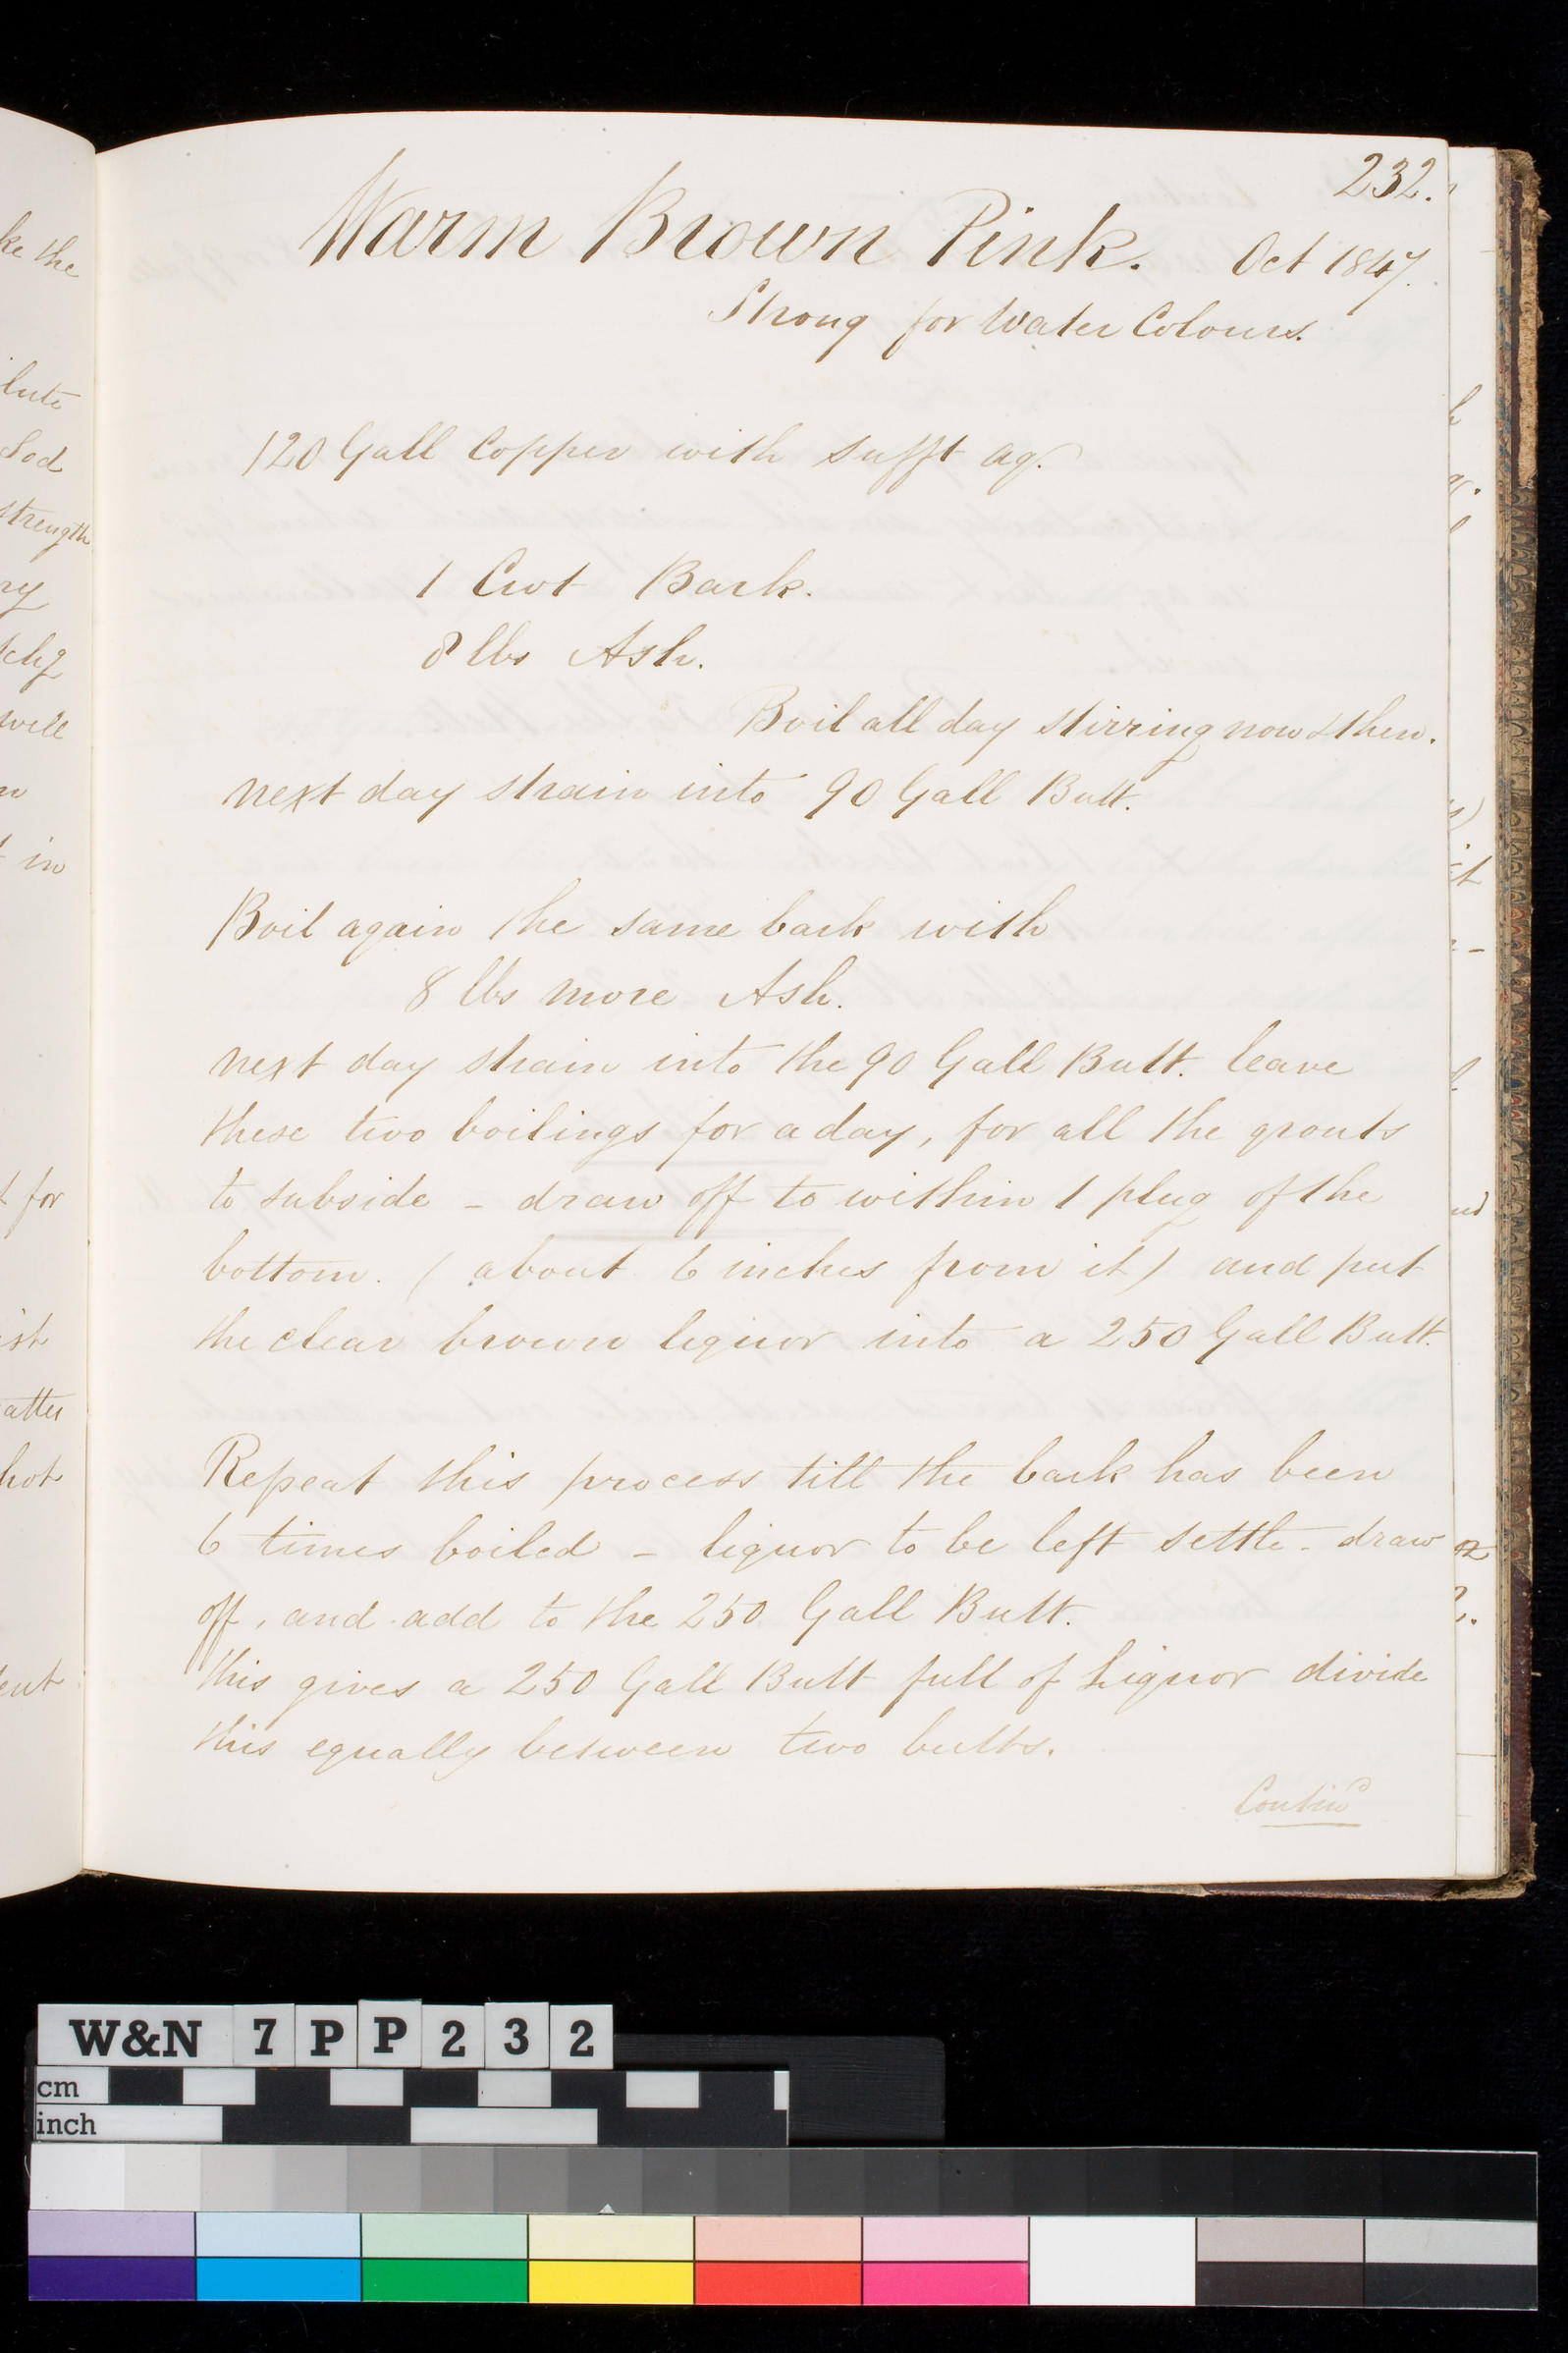 232.
Warm Brown Pink. Oct 1847.
Strong for Water Colours.
120 Gall Copper with sufft aq.
1 Cwt Bark.
8 lbs Ash.
Boil all day stirring now & then.
next day strain into 90 Gall Butt.
Boil again the same bark with
8 lbs more Ash.
next day strain into the 90 Gall Butt. leave
these two boilings for a day, for all the grouts
to subside - draw off to within 1 plug of the
bottom. (about 6 inches from it) and put
the clear brown liquor into a 250 Gall Butt.
Repeat this process till the bark has been
6 times boiled - liquor to be left settle - draw
off, and add to the 250 Gall Butt.
this gives a 250 Gall Butt full of Liquor divide
this equally between two butts.
Contind
ke the
lute
Sod
strength
ry
well
in
t for
atter
hot
it
W&N 7PP232
cm
inch